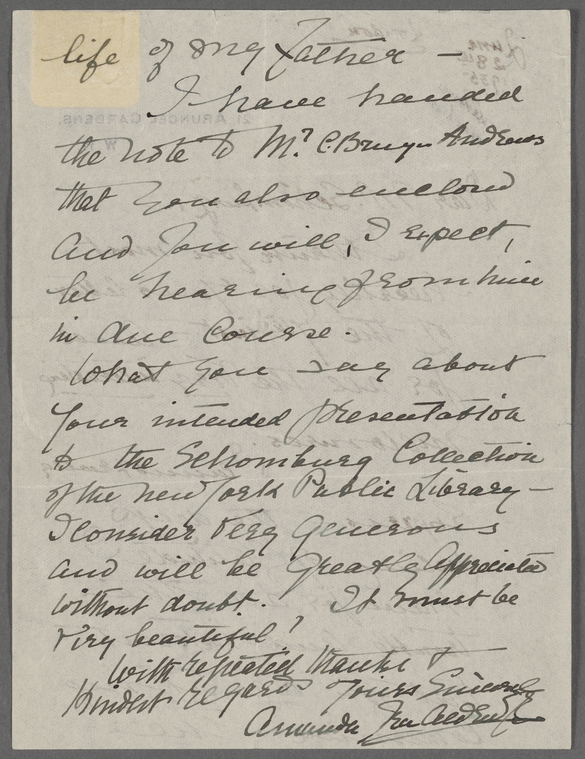 life of my Father —
I have handed
the note to Mr. C. Bruyn Andrews
that you also enclosed
and you will, I expect,
be hearing from him
in due course.
What you say about
your intended presentation
to the Schomburg Collection
of the New York Public Library —
I consider very generous
and will be greatly appreciated
without doubt. It must be
very beautiful!
With repeated thanks &
Kindest regards Yours Sincerely
Amanda Ira Aldridge
21 ARUNDEL GARDENS.
June
28th
1935